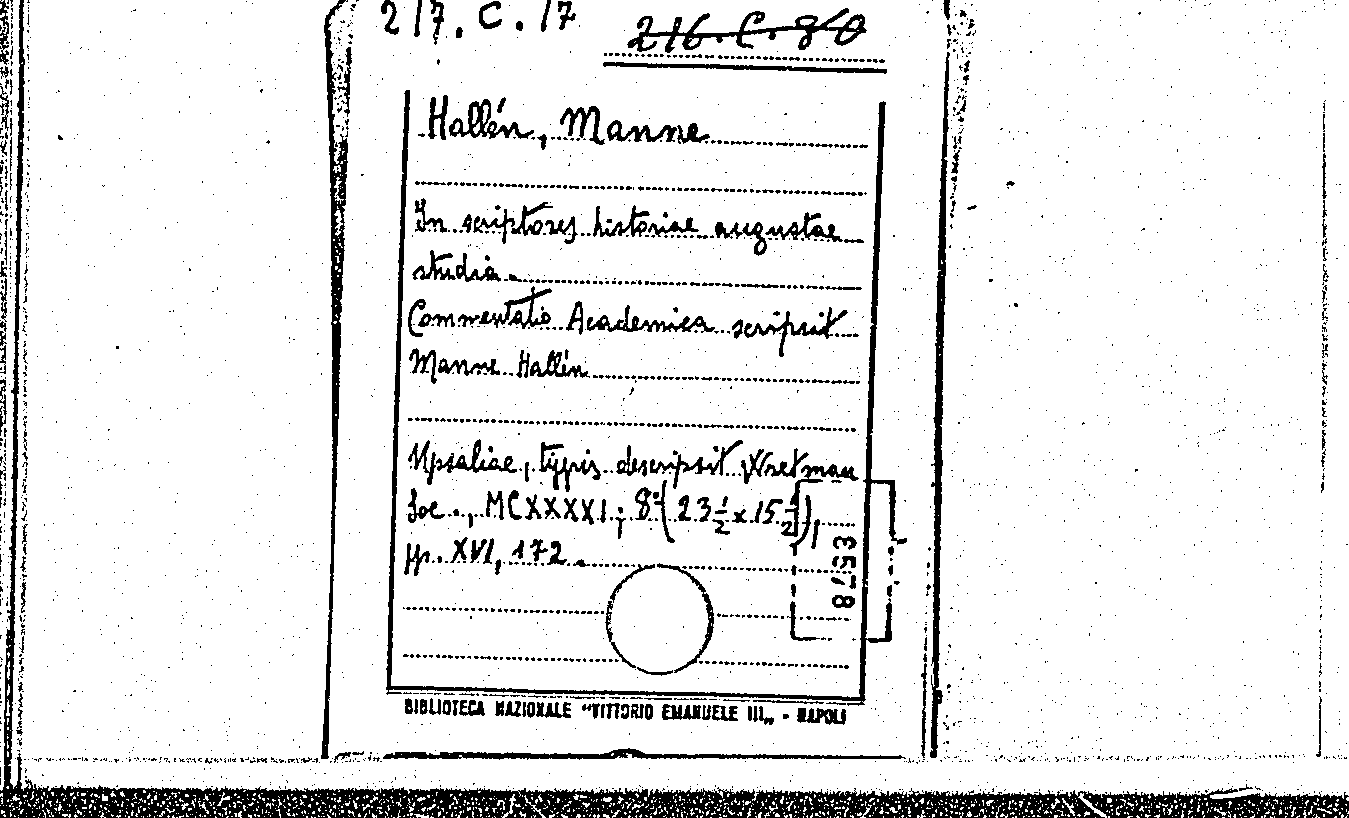 217.C.17
216.C.80
Hallén, Manne
In scriptores historiae augustae
studia.
Commentatio Academica scripsit
Manne Hallén
Upsaliae, typis descripsit Wretman
Soc., MCXXXXI; 8° (23 1/2 x 15 1/2),
pp. XVI, 172.
3578
BIBLIOTECA NAZIONALE "VITTORIO EMANUELE III„ - NAPOLI